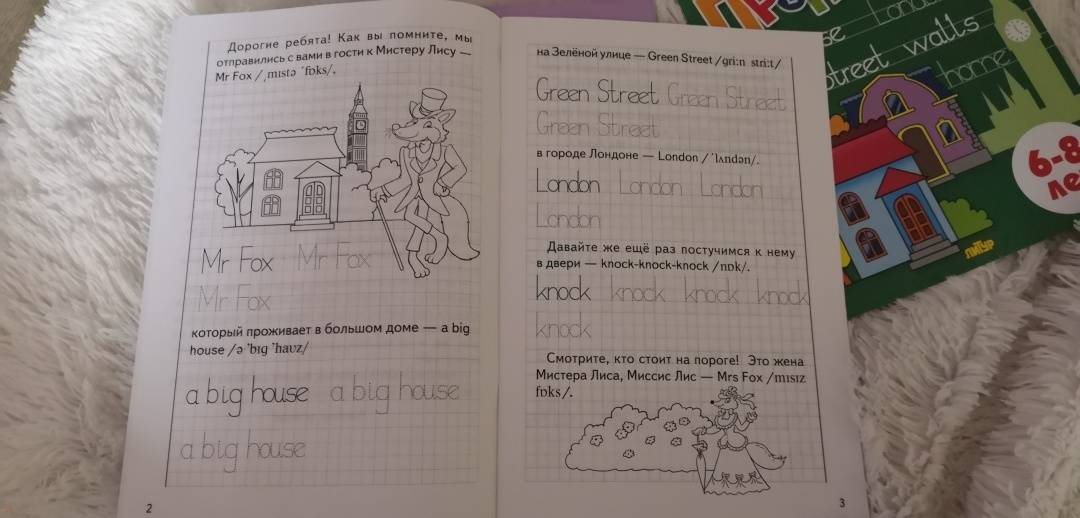 Дорогие ребята! Как вы помните, мы
отправились с вами в гости к Мистеру Лису —
Mr Fox /ˌmɪstə ˈfɒks/.
Mr Fox Mr Fox
Mr Fox
который проживает в большом доме — a big
house /ə ˈbɪɡ ˈhaʊz/
a big house a big house
a big house
2
на Зелёной улице — Green Street /gri:n stri:t/
Green Street Green Street
Green Street
в городе Лондоне — London /ˈlʌndən/.
London London London
London
Давайте же ещё раз постучимся к нему
в двери — knock-knock-knock /nɒk/.
knock knock knock knock
knock
Смотрите, кто стоит на пороге! Это жена
Мистера Лиса, Миссис Лис — Mrs Fox /mɪsɪz
fɒks/.
3
London
street walls
home
6-8
ЛИТУР